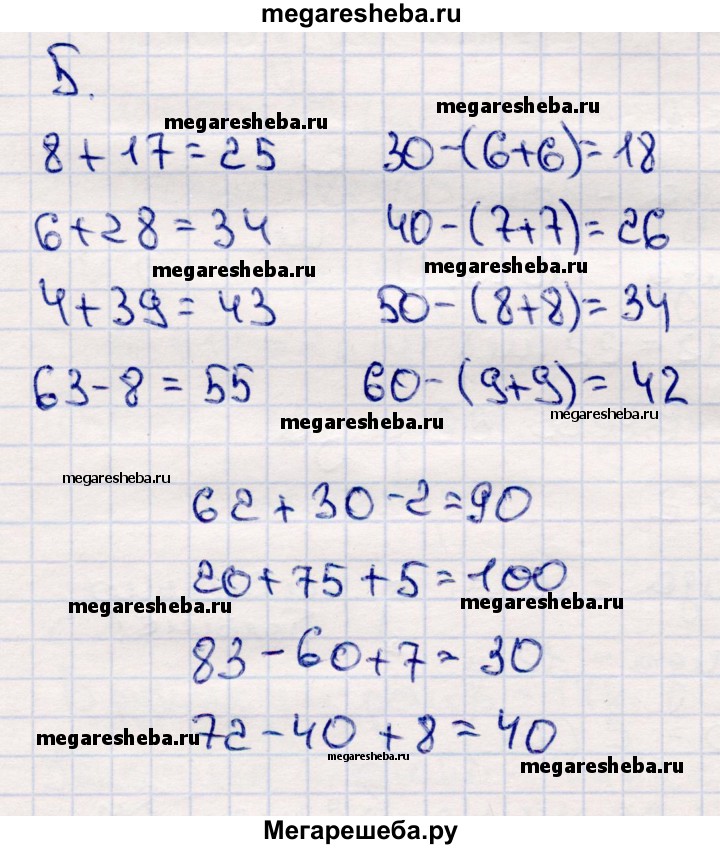 megaresheba.ru
5.
megaresheba.ru
megaresheba.ru
8 + 17 = 25
30 - (6+6) = 18
6 + 28 = 34
40 - (7+7) = 26
megaresheba.ru
megaresheba.ru
4 + 39 = 43
50 - (8+8) = 34
63 - 8 = 55
60 - (9+9) = 42
megaresheba.ru
megaresheba.ru
megaresheba.ru
62 + 30 - 2 = 90
20 + 75 + 5 = 100
megaresheba.ru
megaresheba.ru
83 - 60 + 7 = 30
72 - 40 + 8 = 40
megaresheba.ru
megaresheba.ru
megaresheba.ru
Мегарешеба.ру